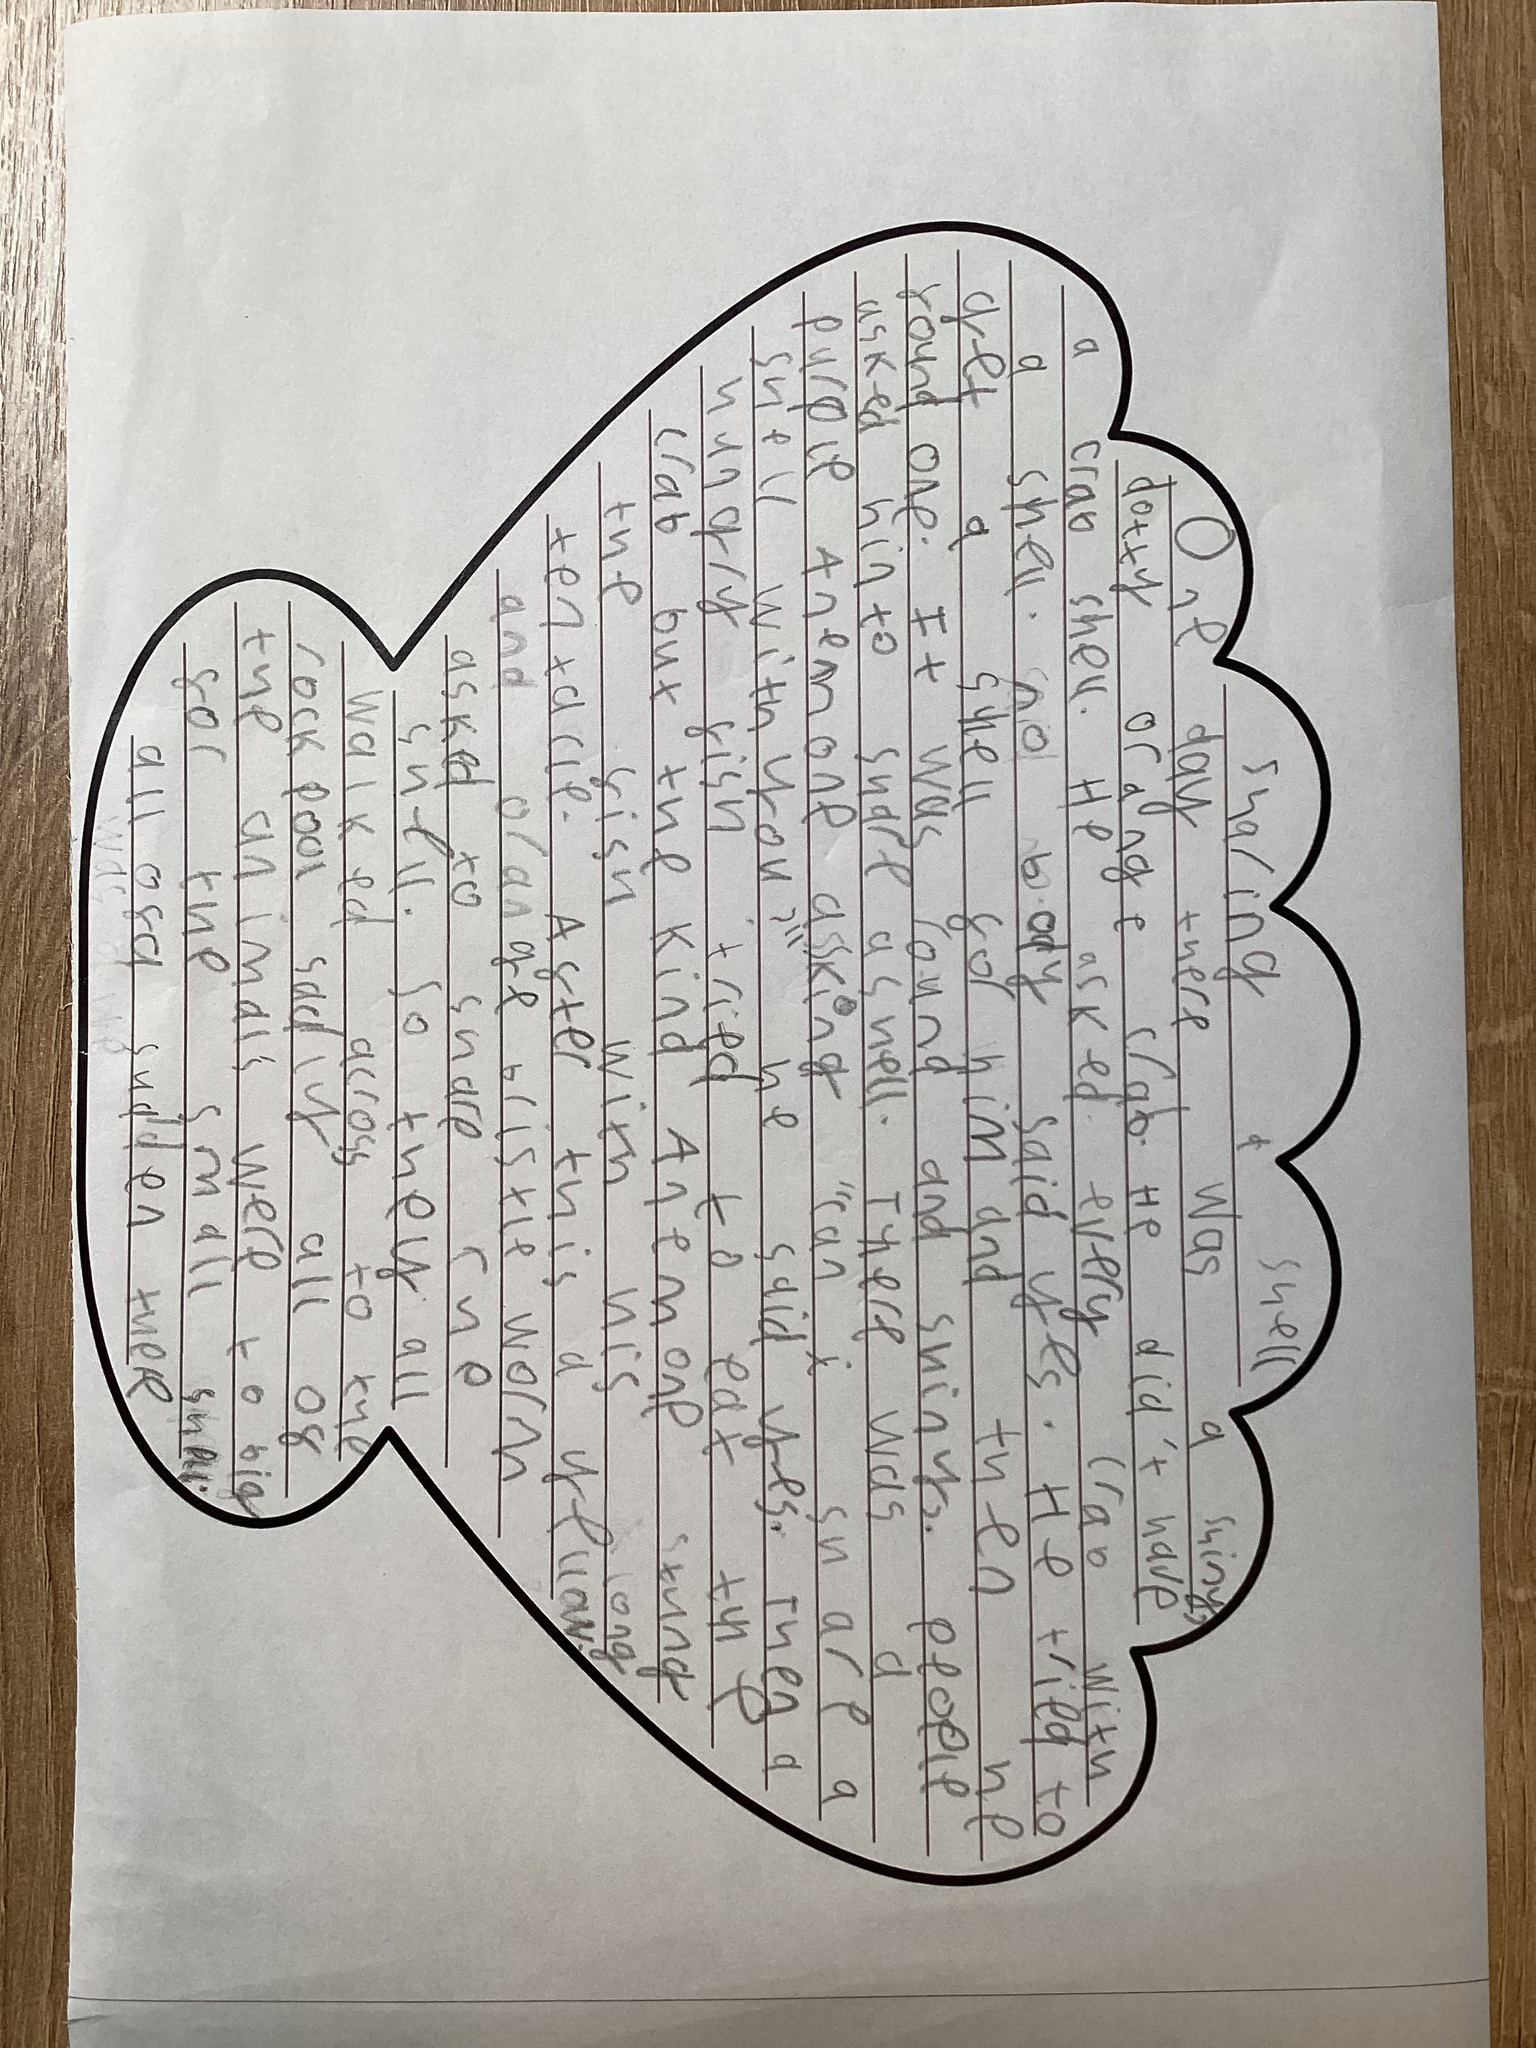 sharing t shell
One day there was a shiny
dotty orange crab. He did't have
a crab shell. He asked every crab with
a shell. body said yes. He tried to
get a shell for him and then he
found one. It was round and shiny. people
asked hin to share a shell. There was a
purple Anemone asking "can i share a
shell with you" he said yes. Then a
hungry fish tried to eat the
crab but the kind Anemone stung
the fish with his long
tentacle. After this a yellow
and orange bristle worm
asked to share the
shell. So they all
walked across to the
rock pool sadly all of
the animals were to big
for the small shell.
all ofa sudden there